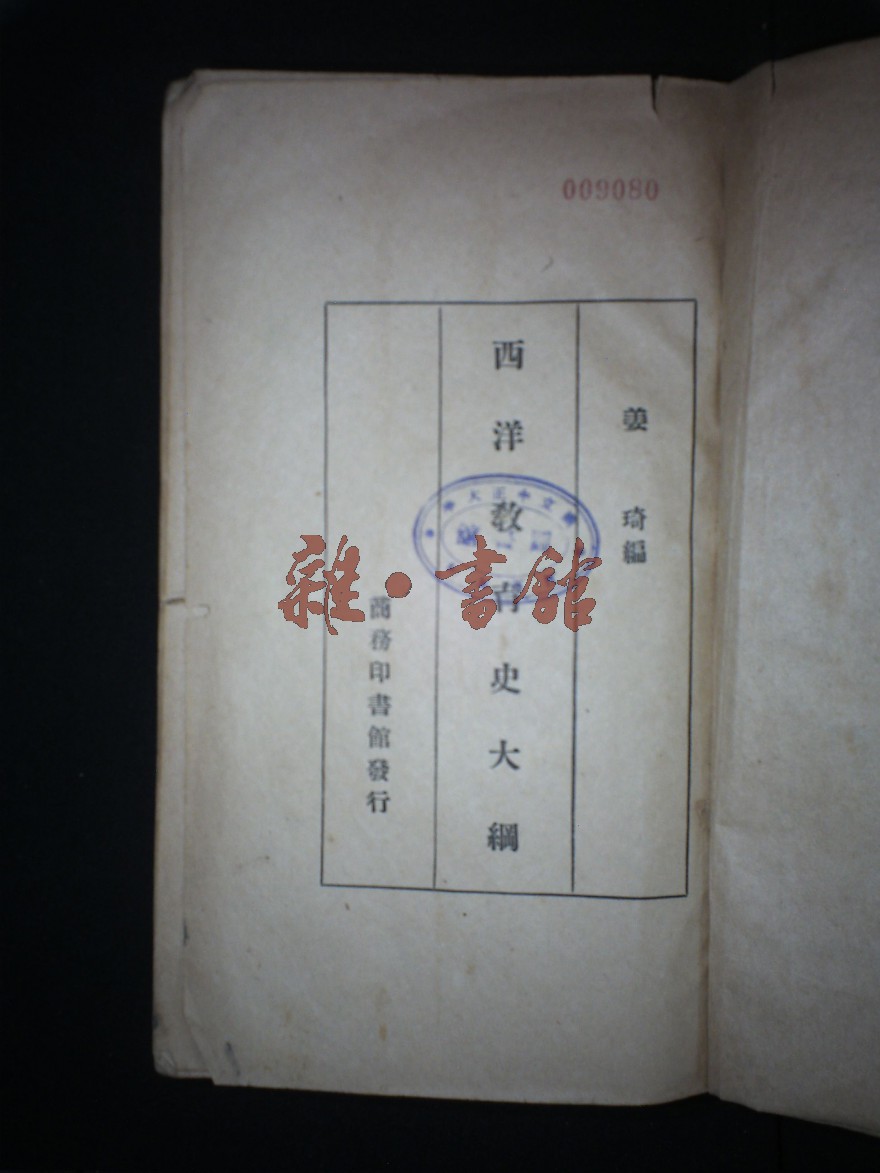 009080
姜琦編
西洋教育史大綱
商務印書館發行
雜·書館